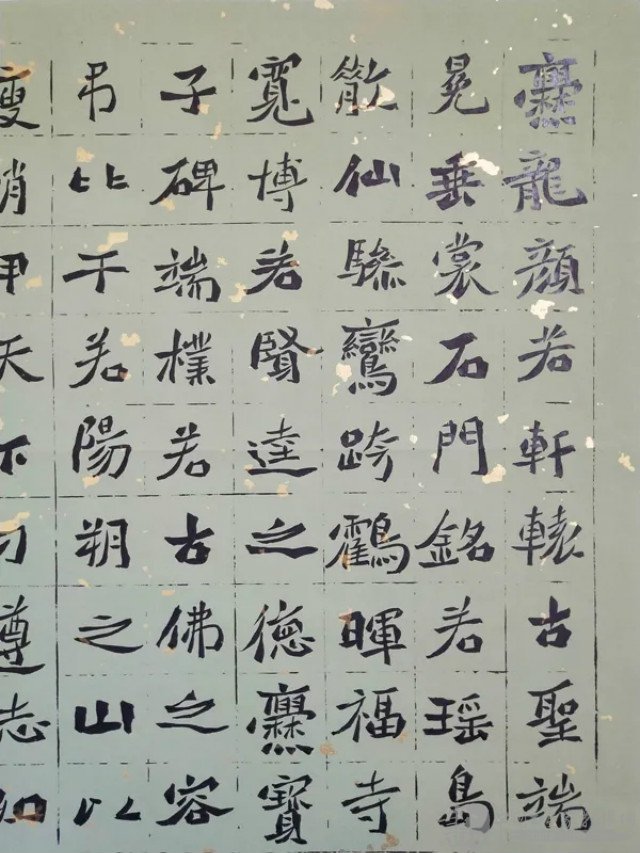 爨龍顏若軒轅古聖端
冕垂裳石門銘若瑤島
散仙驂鸞跨鸖暉福寺
寬博若賢達之德爨寶
子碑端樸若古佛之容
弔比干若陽朔之山以
瘦峭甲天下刁遵志如